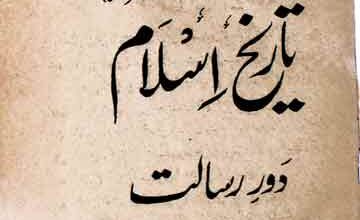 تاریخِ اِسْلَام
دَورِ رسالت